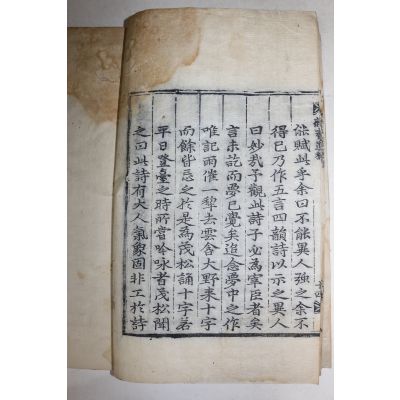 能賦此乎余曰不能異人强之余不
得已乃作五言四韻詩以示之異人
曰妙哉予觀此詩子必爲宰臣者矣
言未訖而夢已覺矣追念夢中之作
唯記雨催一犂去雲含大野来十字
而餘皆忘之於是爲茂松誦十字若
平日登臺之時所嘗吟咏者茂松聞
之曰此詩有大人氣象固非工於詩